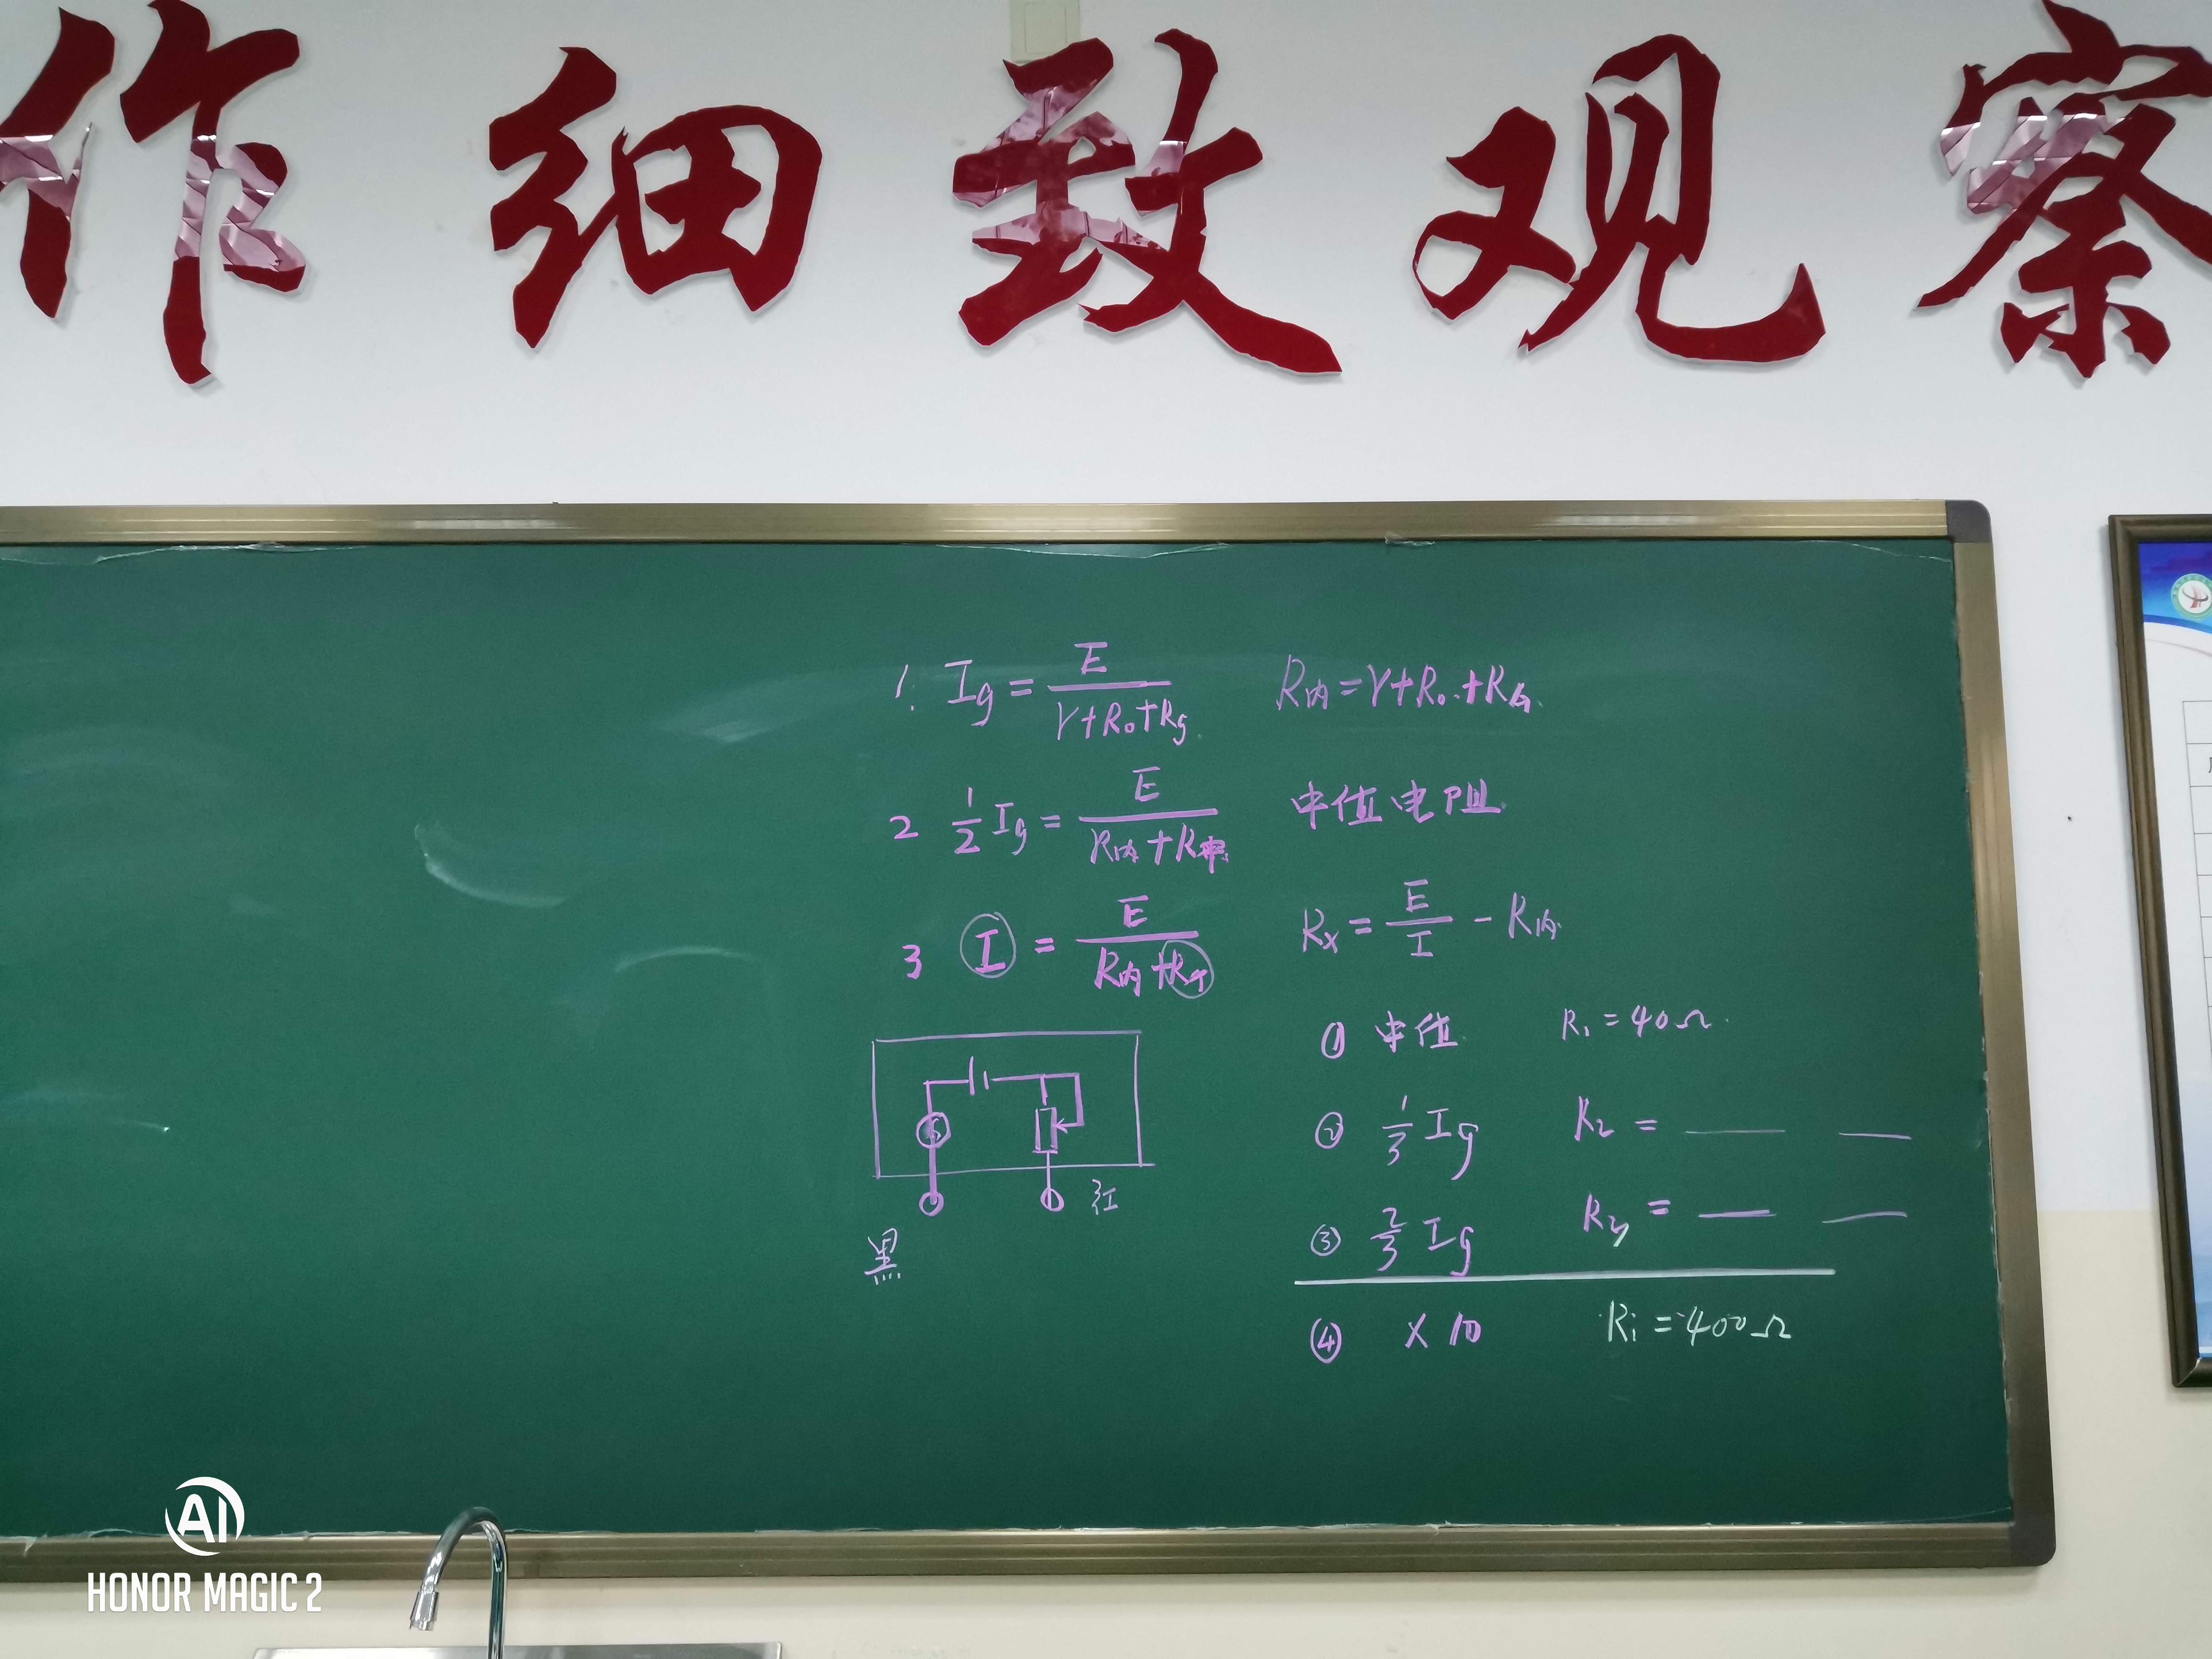 作细致观察
1. Ig = E/(r+R₀+Rg) R内=r+R₀+RG.
2 1/2 Ig = E/(R内+R中) 中值电阻.
3 I = E/(R内+Rx) Rx = E/I - R内.
① 中值. R₁=40Ω.
② 1/3 Ig R₂ = ___ ___
③ 2/3 Ig R₃ = ___ ___
④ ×10 Ri=400Ω
G
红
黑
AI
HONOR MAGIC 2